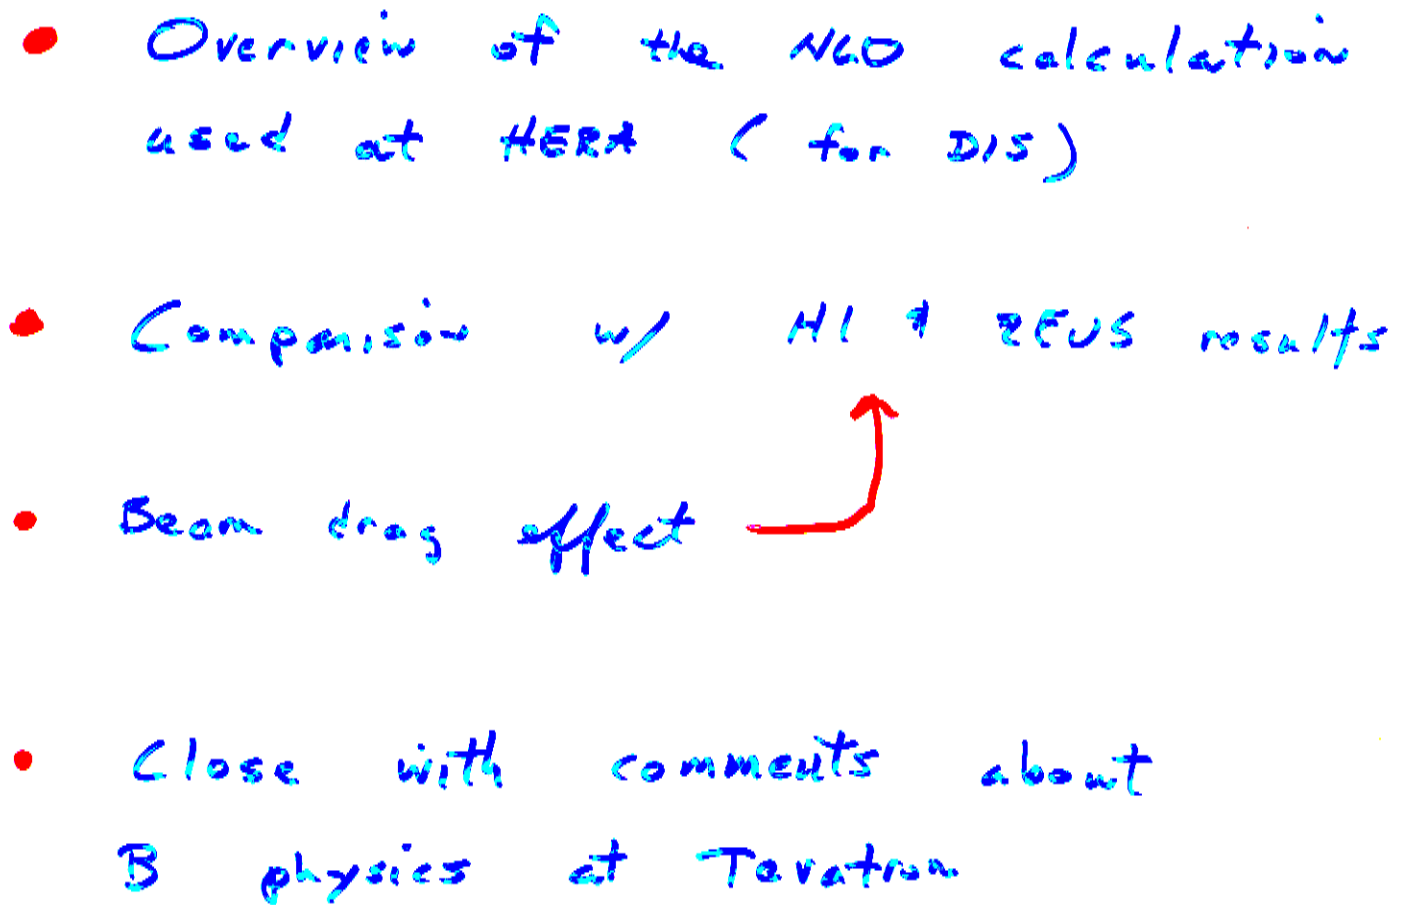 • Overview of the NLO calculation
used at HERA (for DIS)
• Comparison w/ H1 & ZEUS results
• Beam drag effect
• Close with comments about
B physics at Tevatron